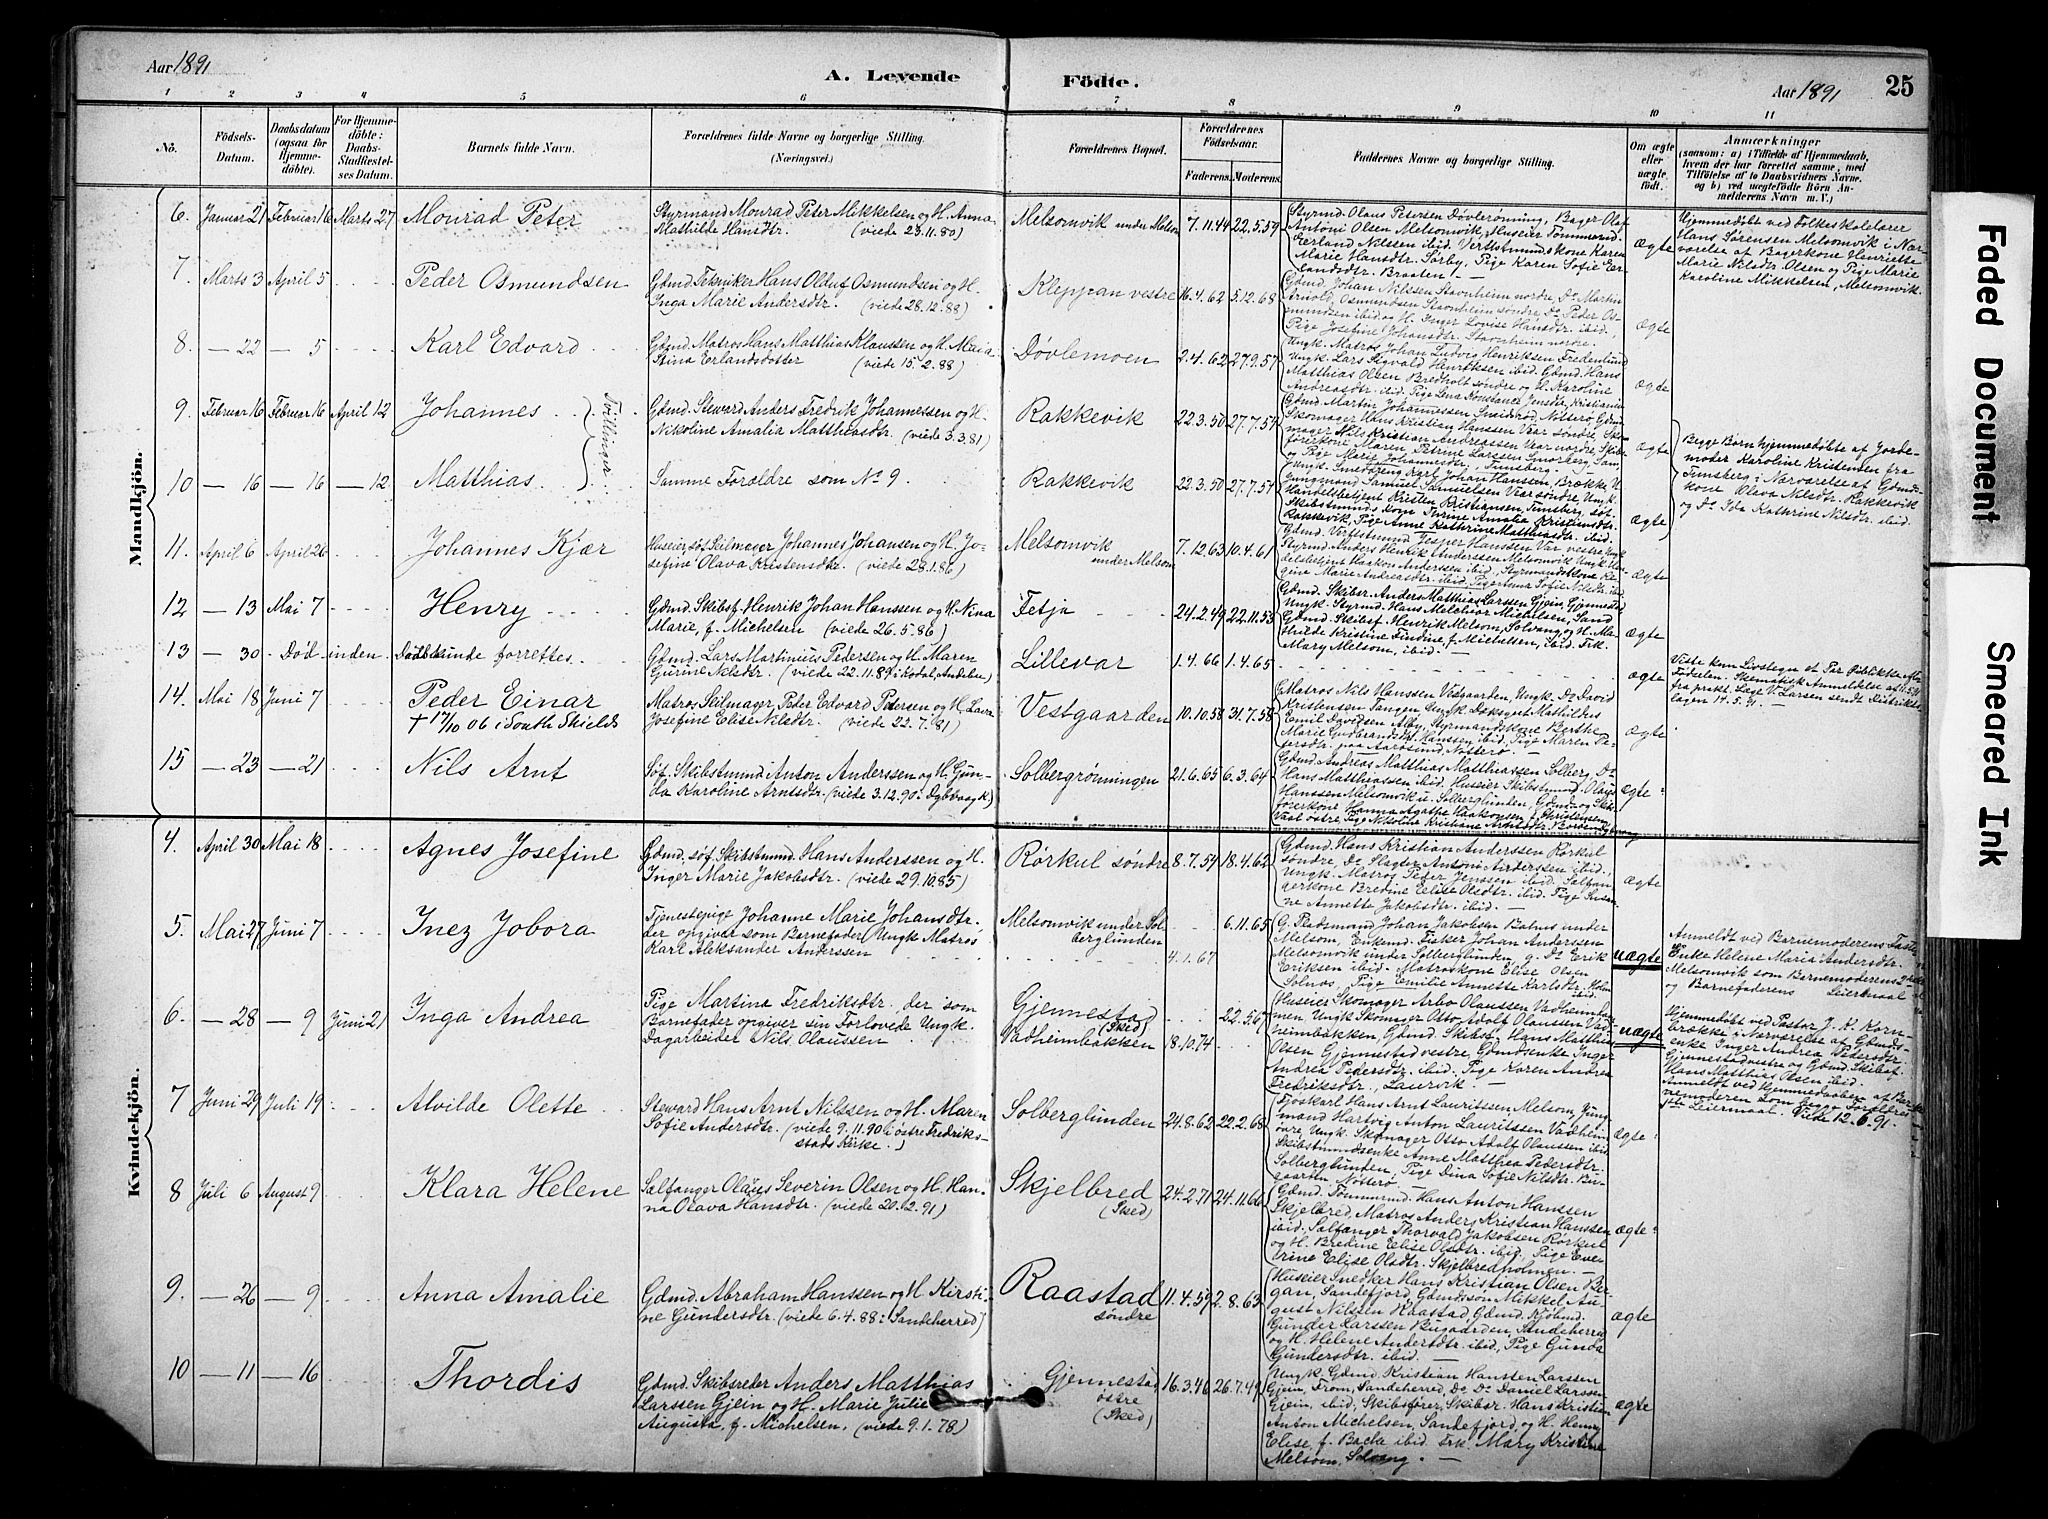 Aar 1891
A. Levende
Födte.
Aar 1891
25
1 2 3 4 5 6 7 8 9 10 11
No.
Födsels-
Datum.
Daabsdatum
(ogsaa for
Hjemme-
döbte).
For Hjemme-
döbte:
Daabs-
Stadfæstel-
ses Datum.
Barnets fulde Navn.
Forældrenes fulde Navne og borgerlige Stilling.
(Næringsvei.)
Forældrenes Bopæl.
Forældrenes
Födselsaar.
Faderens. Moderens.
Faddernes Navne og borgerlige Stilling.
Om ægte
eller
uægte
födt.
Anmærkninger
(saasom: a) i Tilfælde af Hjemmedaab,
hvem der har forrettet samme, med
Tilföielse af to Daabsvidners Navne,
og b) ved uægtefödte Börn An-
melderens Navn m. V.)
Mandkjön.
6. Januar 21 Februar 16 Marts 27 Monrad Peter
Styrmand Monrad Peter Mikkelsen og H. Anna
Mathilde Hansdtr. (viede 28.11.80)
Melsomvik under Melsom
7.11.44 22.5.59
Styrmd. Olaus Petersen Døvlerønning, Bager Olaf
Antoni Olsen Melsomvik, Huseier Tømmermd.
Erland Nilssen ibid. Verftsmundskone Karen
Marie Hansdtr. Sørby, Pige Karen Sofie Er-
landsdtr. Braaten
ægte
Hjemmedøbt ved Folkeskolelærer
Hans Sørensen Melsomvik i Nær-
værelse af Bagerkone Henriette
Marie Nilsdtr. Olsen og Pige Marie
Karoline Mikkelsen, Melsomvik.
7. Marts 3 April 5 Peder Osmundsen
Gdmd. Tekniker Hans Oluf Osmundsen og H.
Inga Marie Andersdtr. (viede 28.12.88)
Kleppan vestre
16.4.62 5.12.68
Gdmd. Johan Nilssen Stavnheim nordre, Do Martin
Arnold Osmundsen Stavnheim søndre, Do Peder Os-
mundsen ibid og H. Inger Lovise Hansdtr. ibid,
Pige Josefine Johansdtr. Stavnheim nordre.
ægte
8. — 22 — 5 Karl Edvard
Gdmd. Matros Hans Matthias Klaussen og H. Maia
Stina Erlandsdotter (viede 15.2.88)
Døvlemoen
2.4.62 27.9.57
Ungk. Matros Johan Ludvig Henriksen Fredenlund
Ungk. Lars Sigvald Henriksen ibid. Gdmd. Hans
Matthias Olsen Bredholt søndre og H. Karoline
Andreasdtr. ibid. Pige Lena Konstance Jensdtr. Kristiania
ægte
9. Februar 16 Februar 16 April 12 Johannes
Tvillinger
Gdmd. Steward Anders Fredrik Johannessen og H.
Nikoline Amalia Matthiasdtr. (viede 3.3.81)
Rakkevik
22.3.50 27.7.57
Gdmd. Martin Johannessen Sneidrød, Nøtterø, Gdmd.
Skomager Hans Kristian Hanssen Vear søndre, Sko-
mager Nils Kristian Andreassen Vear nordre, Skibs-
førerkone Maren Petrine Larssen Smørberg, Sam
og Pige Marie Johannesdtr., Tunsberg.
ægte
Begge Børn hjemmedøbte af Jorde-
moder Karoline Kristensen fra
Tunsberg i Nærværelse af Gdmds-
kone Olava Nilsdtr. Rakkevik
og Do Ida Kathrine Nilsdtr. ibid.
10 — 16 — 16 — 12 Matthias
Samme Forældre som No 9
Rakkevik
22.3.50 27.7.57
Ungk. Smeddreng Karl Johan Hanssen, Brække
Ungmand Samuel Samuelsen Vear søndre, Ungk.
Handelsbetjent Kristen Kristiansen, Tunsberg, søf.
Skibstmunds Kone Thrine Amalia Kristiansdtr.
Rakkevik, Pige Anne Kathrine Matthiasdtr. ibid.
ægte
11. April 6 April 26 Johannes Kjær
Huseier, søf. Seilmager Johannes Johansen og H. Jo-
sefine Olava Kristensdtr. (viede 28.1.86)
Melsomvik
under Melsom
7.12.63 10.4.61
Gdmd. Verftstmd. Jesper Hanssen Var vestre, Ungk.
Styrmd. Anders Henrik Anderssen Melsomvik, Ungk. Han-
delsbetjent Haakon Anderssen ibid, Styrmandskone Re-
gine Marie Andreasdtr. ibid. Pige Anna Sofie Nilsdtr. ibid
ægte
12 — 13 Mai 7 Henry
Gdmd. Skibsf. Henrik Johan Hanssen og H. Nina
Marie, f. Michelsen (viede 26.5.86)
Fetja
24.2.49 22.11.53
Gdmd. Skibsr. Anders Matthias Larssen Gjein, Gjennestad
Ungk. Styrmd. Hans Melchior Michelsen, Sand
Gdmd. Skibsf. Henrik Melsom, Solvang og H. Ma-
thilde Kristine Findine, f. Michelsen, ibid. Frk.
Mary Melsom, ibid.
ægte
13 — 30 Død inden Daab kunde forrettes
Gdmd. Lars Martinius Pedersen og H. Maren
Gurine Nilsdtr. (viede 22.11.89 i Kodal, Andebu)
Lillevar
1.4.66 1.4.65
ægte
Viste kun Livstegn et Par Øieblikke efter
Fødselen. Skematisk Anmeldelse af 11.5.91
fra prakt. Læge V. Larsen sendt Distrikts-
lægen 14.5.91.
14. Mai 18 Juni 7 Peder Einar
† 17/10 06 i South Shields
Matros Seilmager, Peder Edvard Petersen og H. Laura
Josefine Elise Nilsdtr. (viede 22.7.81)
Vestgaarden
10.10.58 31.7.58
Matros Nils Hanssen Vestgaarden, Ungk. Do David
Kristensen Tangen, Ungk. Dæksgut Mathildus
Emil Davidsen Alby, Styrmandskone Berthe
Marie Gudbrandsdtr. Hanssen ibid. Pige Maren Pe-
dersdtr. paa Aarøsund, Nøtterø
ægte
15 — 23 — 21 Nils Arnt
Søf. Skibstmund Anton Anderssen og H. Gun-
da Karoline Arntsdtr. (viede 3.12.90 i Dybvaag k.)
Solbergrønningen
21.6.65 6.3.64
Gdmd. Andreas Matthias Matthiassen Solberg, Do
Hans Matthiassen ibid. Huseier Skibstmund. Olaus
Hanssen Melsomvik u. Solberglunden, Gdmd. og Skibs-
førerkone Hanna Agathe Haakonsen, f. Christensen,
Vaal østre, Pige Nikoline Kristiane Arntsdtr.
ægte
Kvindekjön.
4. April 30 Mai 18 Agnes Josefine
Gdmd. søf. Skibstmund. Hans Anderssen og H.
Inger Marie Jakobsdtr. (viede 29.10.85)
Rørkul søndre
8.7.54 18.4.62
Gdmd. Hans Kristian Anderssen Rørkul
søndre, Do Slagter Antoni Anderssen ibid.,
Ungk. Matros Peder Jenssen ibid. Sælfan-
gerkone Bredine Elise Olsdtr. ibid. Pige Susan-
ne Annette Jakobsdtr. ibid.
ægte
5. Mai 27 Juni 7 Inez Jobora
Tjenestepige Johanne Marie Johansdtr.
der opgiver som Barnefader Ungk. Matros
Karl Aleksander Anderssen
Melsomvik under Sol-
berglunden
6.11.65
4.1.67
G. Pladsmand Johan Jakobsen Bahus under
Melsom, Enkemd. Fisker Johan Anderssen
Melsomvik under Solberglunden, g. Do Erik
Eriksen ibid. Matroskone Elise Olsen
Solnøs, Pige Emilie Annette Karlsdtr. Holm
ibid.
uægte
Anmeldt ved Barnemoderens Faster
Enke Helene Maria Andersdtr.
Melsomvik som Barnemoderens 2det
og Barnefaderens Leiermaal
6. — 28 — 9 Juni 21 Inga Andrea
Pige Martina Fredriksdtr. der som
Barnefader opgiver sin Forlovede Ungk.
Dagarbeider Nils Olaussen
Gjennestad
(Sked)
Vadheimbakken
22.5.67
18.10.74
Huseier Skomager Arbo Olaussen Vadheimhau-
men, Ungk. Skomager Otto Adolf Olaussen Vad-
heimbakken, Gdmd. Skibsf. Hans Matthias
Olsen Gjennestad vestre, Gdmdsenke Inger
Andrea Pedersdtr. ibid. Pige Karen Andrea
Fredriksdtr., Laurvik.
uægte
Hjemmedøbt ved Pastor J. K. Korn-
brække i Nærværelse af Gdmds-
enke Inger Andrea Petersdtr.
Gjennestad vestre og Gdmd. Skibsf.
Hans Matthias Olsen ibid.
Anmeldt ved Hjemmedaaben af Bar-
nemoderen som begge Forældres
1ste Leiermaal. Viede 12.6.91.
7 Juni 29 Juli 19 Alvilde Olette
Steward Hans Arnt Nilssen og H. Maren
Sofie Andersdtr. (viede 9.11.90 i østre Fredriks-
stads Kirke.)
Solberglunden
24.8.62 22.2.68
Fjøskarl Hans Arnt Lauritssen Melsom, Jung-
mand Hartvig Anton Lauritssen Vadheim
øvre, Ungk. Skomager Otto Adolf Olaussen ibid.
Skibstmundsenke Anne Matthea Pedersdtr.
Solberglunden, Pige Dina Sofie Nilsdtr. Bu-
gaarden, Nøtterø
ægte
8 Juli 6 August 9 Klara Helene
Sælfanger Olaus Severin Olsen og H. Han-
na Olava Hansdtr. (viede 20.2.91)
Skjelbred
(Sked)
24.2.71 24.11.66
Gdmd. Tømmermd. Hans Anton Hanssen
Skjelbred, Matros Anders Kristian Hanssen
ibid. Sælfanger Thorvald Jakobsen Rørkul
og H. Bredine Elise Olsdtr. ibid. Pige Eve-
rine Elise Olsdtr. Skjelbredholmen.
ægte
9. — 26 — 9 Anna Amalie
Gdmd. Abraham Hanssen og H. Kirsti-
ne Gundersdtr. (viede 6.4.88 i Sandeherred)
Raastad
søndre
11.4.59 2.8.63
Huseier Snedker Hans Kristian Olsen Ber-
gan, Sandefjord, Gdmdssøn Mikkel Au-
gust Nilsen Raastad, Gdmd. Kjøbmd.
Gunder Larssen Bugaarden, Sandeherred
og H. Helene Andersdtr. ibid, Pige Gunda
Gundersdtr. ibid.
ægte
10 — 11 — 16 Thordis
Gdmd. Skibsreder Anders Matthias
Larssen Gjein og H. Marie Julie
Augusta, f. Michelsen, (viede 9.1.78)
Gjennestad
østre
(Sked)
16.3.46 26.7.49
Ungk. Gdmd. Kristian Hansten Larssen
Gjein, From, Sandeherred, Do. Do. Daniel Larssen
Gjein, ibid, Skibsfører, Skibsr. Hans Kristian
Anton Michelsen, Sandefjord, og H. Henny
Elise, f. Backe ibid. Frk. Mary Kristine
Melsom, Solvang.
ægte
Faded Document
Smeared Ink